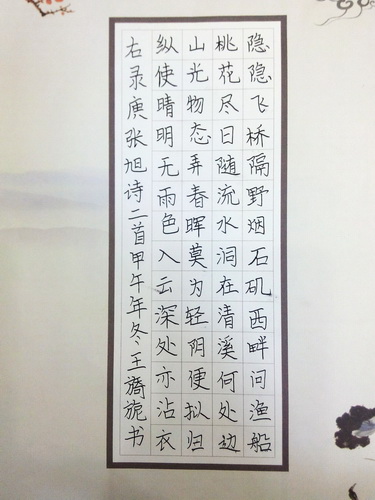 隐隐飞桥隔野烟石矶西畔问渔船
桃花尽日随流水洞在清溪何处边
山光物态弄春晖莫为轻阴便拟归
纵使晴明无雨色入云深处亦沾衣
右录庚张旭诗二首甲午年冬王旖旎书